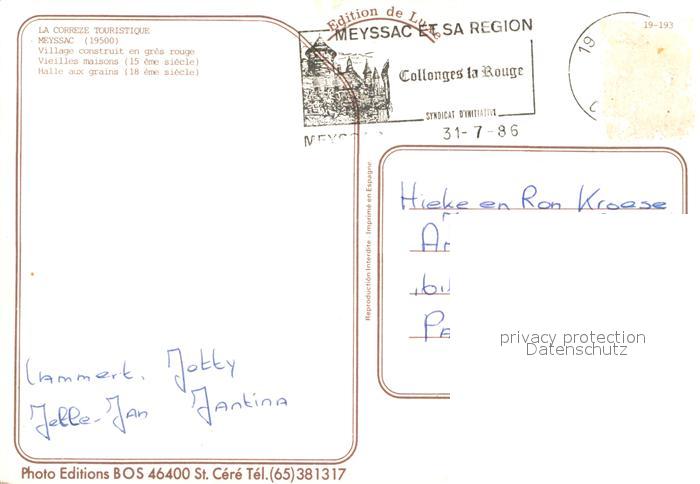 LA CORREZE TOURISTIQUE
MEYSSAC (19500)
Village construit en grès rouge
Vieilles maisons (15 ème siècle)
Halle aux grains (18 ème siècle)
Edition de Luxe
19-193
MEYSSAC ET SA REGION
Collonges la Rouge
SYNDICAT D'INITIATIVE
31-7-86
19
Reproduction Interdite. Imprimé en Espagne
Hieke en Ron Kroese
privacy protection
Datenschutz
Lammert. Jotty
Jelle-Jan Jantina
Photo Editions BOS 46400 St. Céré Tél.(65)381317